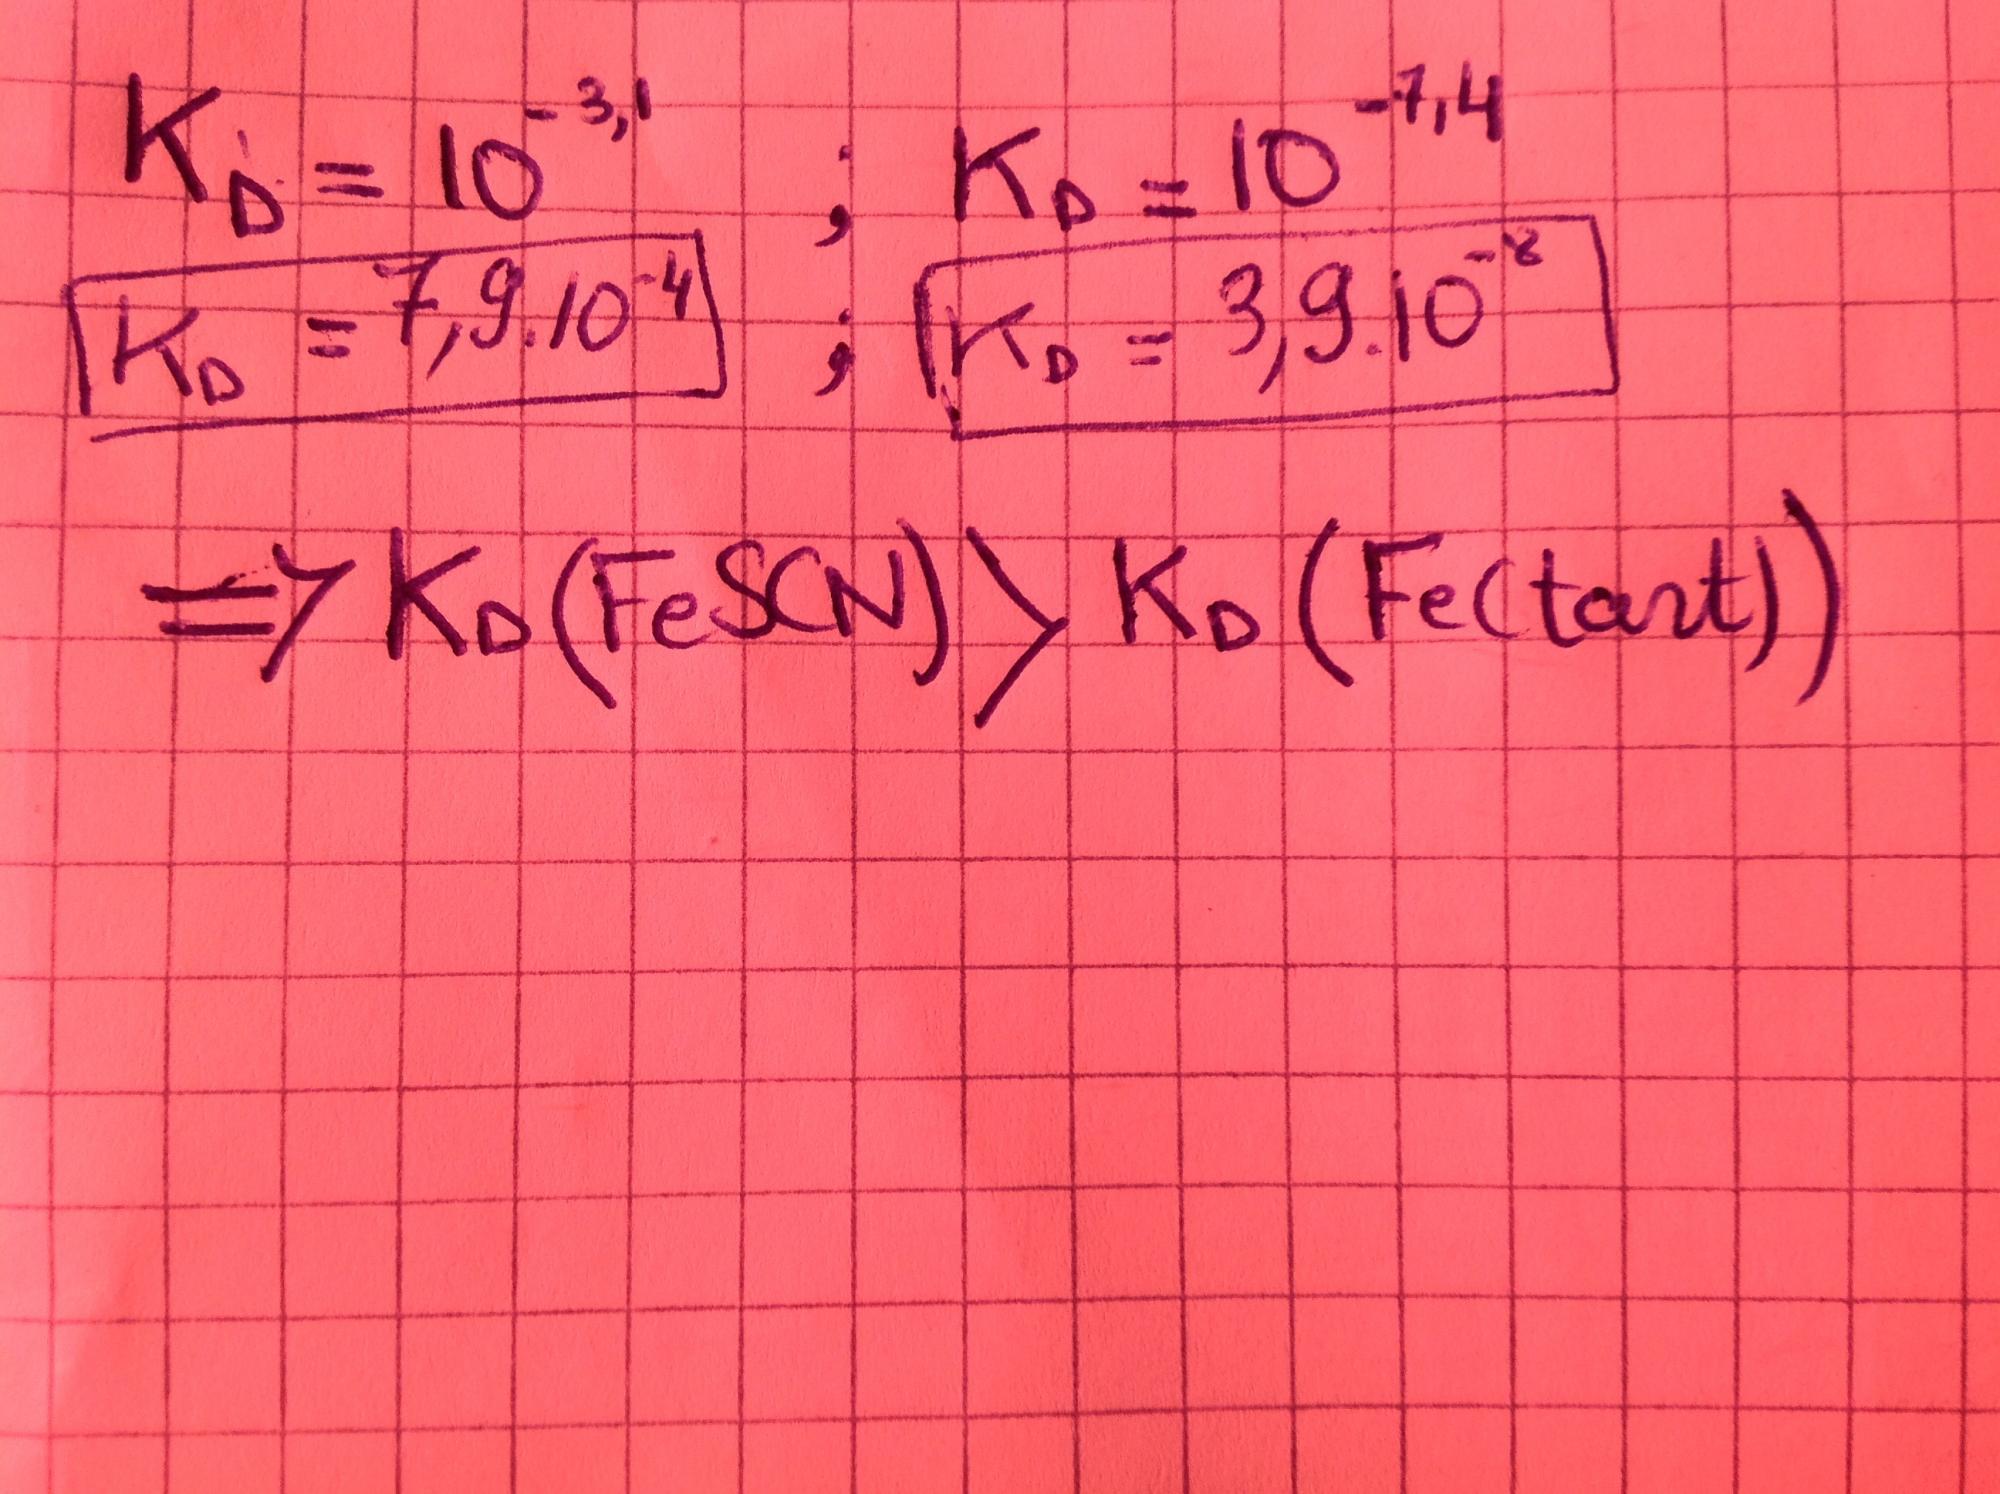 K_D = 10^-3,1 ; K_D = 10^-7,4
K_D = 7,9.10^-4 ; K_D = 3,9.10^-8
=> K_D (FeSCN) > K_D (Fe(tart))